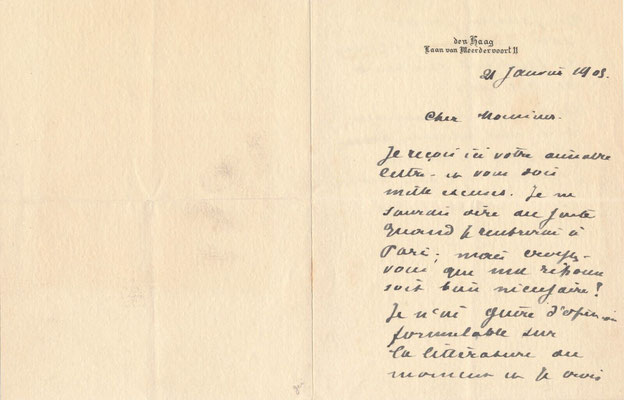 den Haag
Laan van Meerdervoort 11
21 Janvier 1905.
Cher Monsieur.
Je reçois ici votre aimable
lettre - et vous dois
mille excuses. Je ne
saurais dire au juste
quand je rentrerai à
Paris; mais croyez-
vous que ma réponse
soit bien nécessaire?
Je n'ai guère d'opinion
formulable sur
la littérature du
moment et je crois